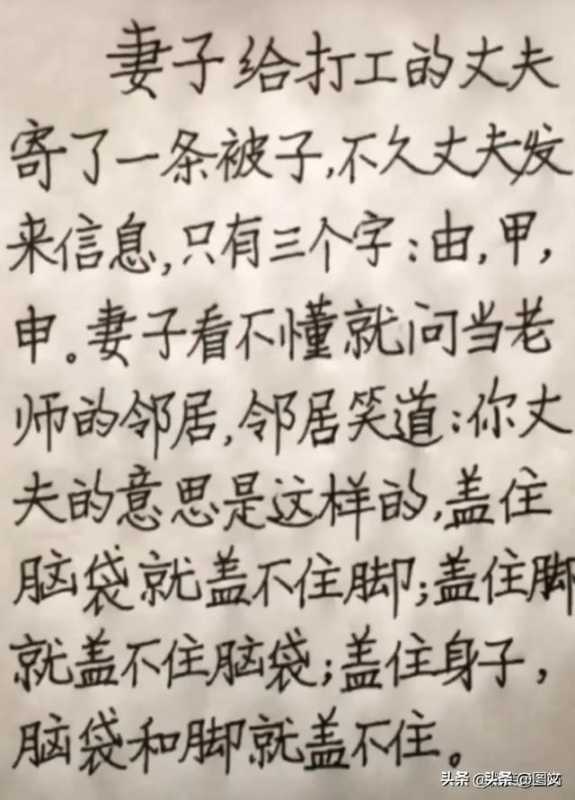 妻子给打工的丈夫
寄了一条被子,不久丈夫发
来信息,只有三个字:由,甲,
申。妻子看不懂就问当老
师的邻居,邻居笑道:你丈
夫的意思是这样的,盖住
脑袋就盖不住脚;盖住脚
就盖不住脑袋;盖住身子,
脑袋和脚就盖不住。
头条 @头条 @图文